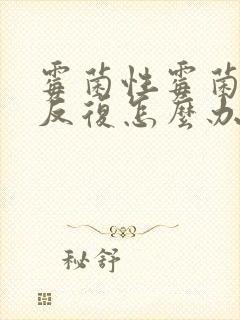 霉菌性霉菌
反復怎麼办
秘舒